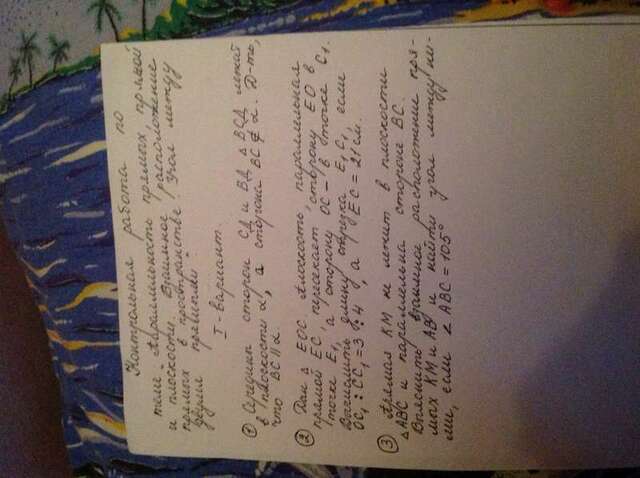 Контрольная работа по
теме "Параллельность прямых, прямой
и плоскости. Взаимное расположение
прямых в пространстве. Угол между
двумя прямыми"
I-вариант.
① Середины сторон СД и ВД ∆ ВСД лежат
в плоскости α, а сторона ВС ∉ α. Д-ть,
что ВС || α
② Дан ∆ ЕОС. Плоскость, параллельная
прямой ЕС, пересекает сторону ЕО в
точке Е₁, а сторону ОС – в точке С₁.
Вычислить длину отрезка Е₁С₁, если
ОС₁ : СС₁ = 3 : 4, а ЕС = 21 см.
③ Прямая КМ не лежит в плоскости
∆ АВС и параллельна стороне ВС.
Выяснить взаимное расположение пря-
мых КМ и АВ и найти угол между ни-
ми, если ∠ АВС = 105°